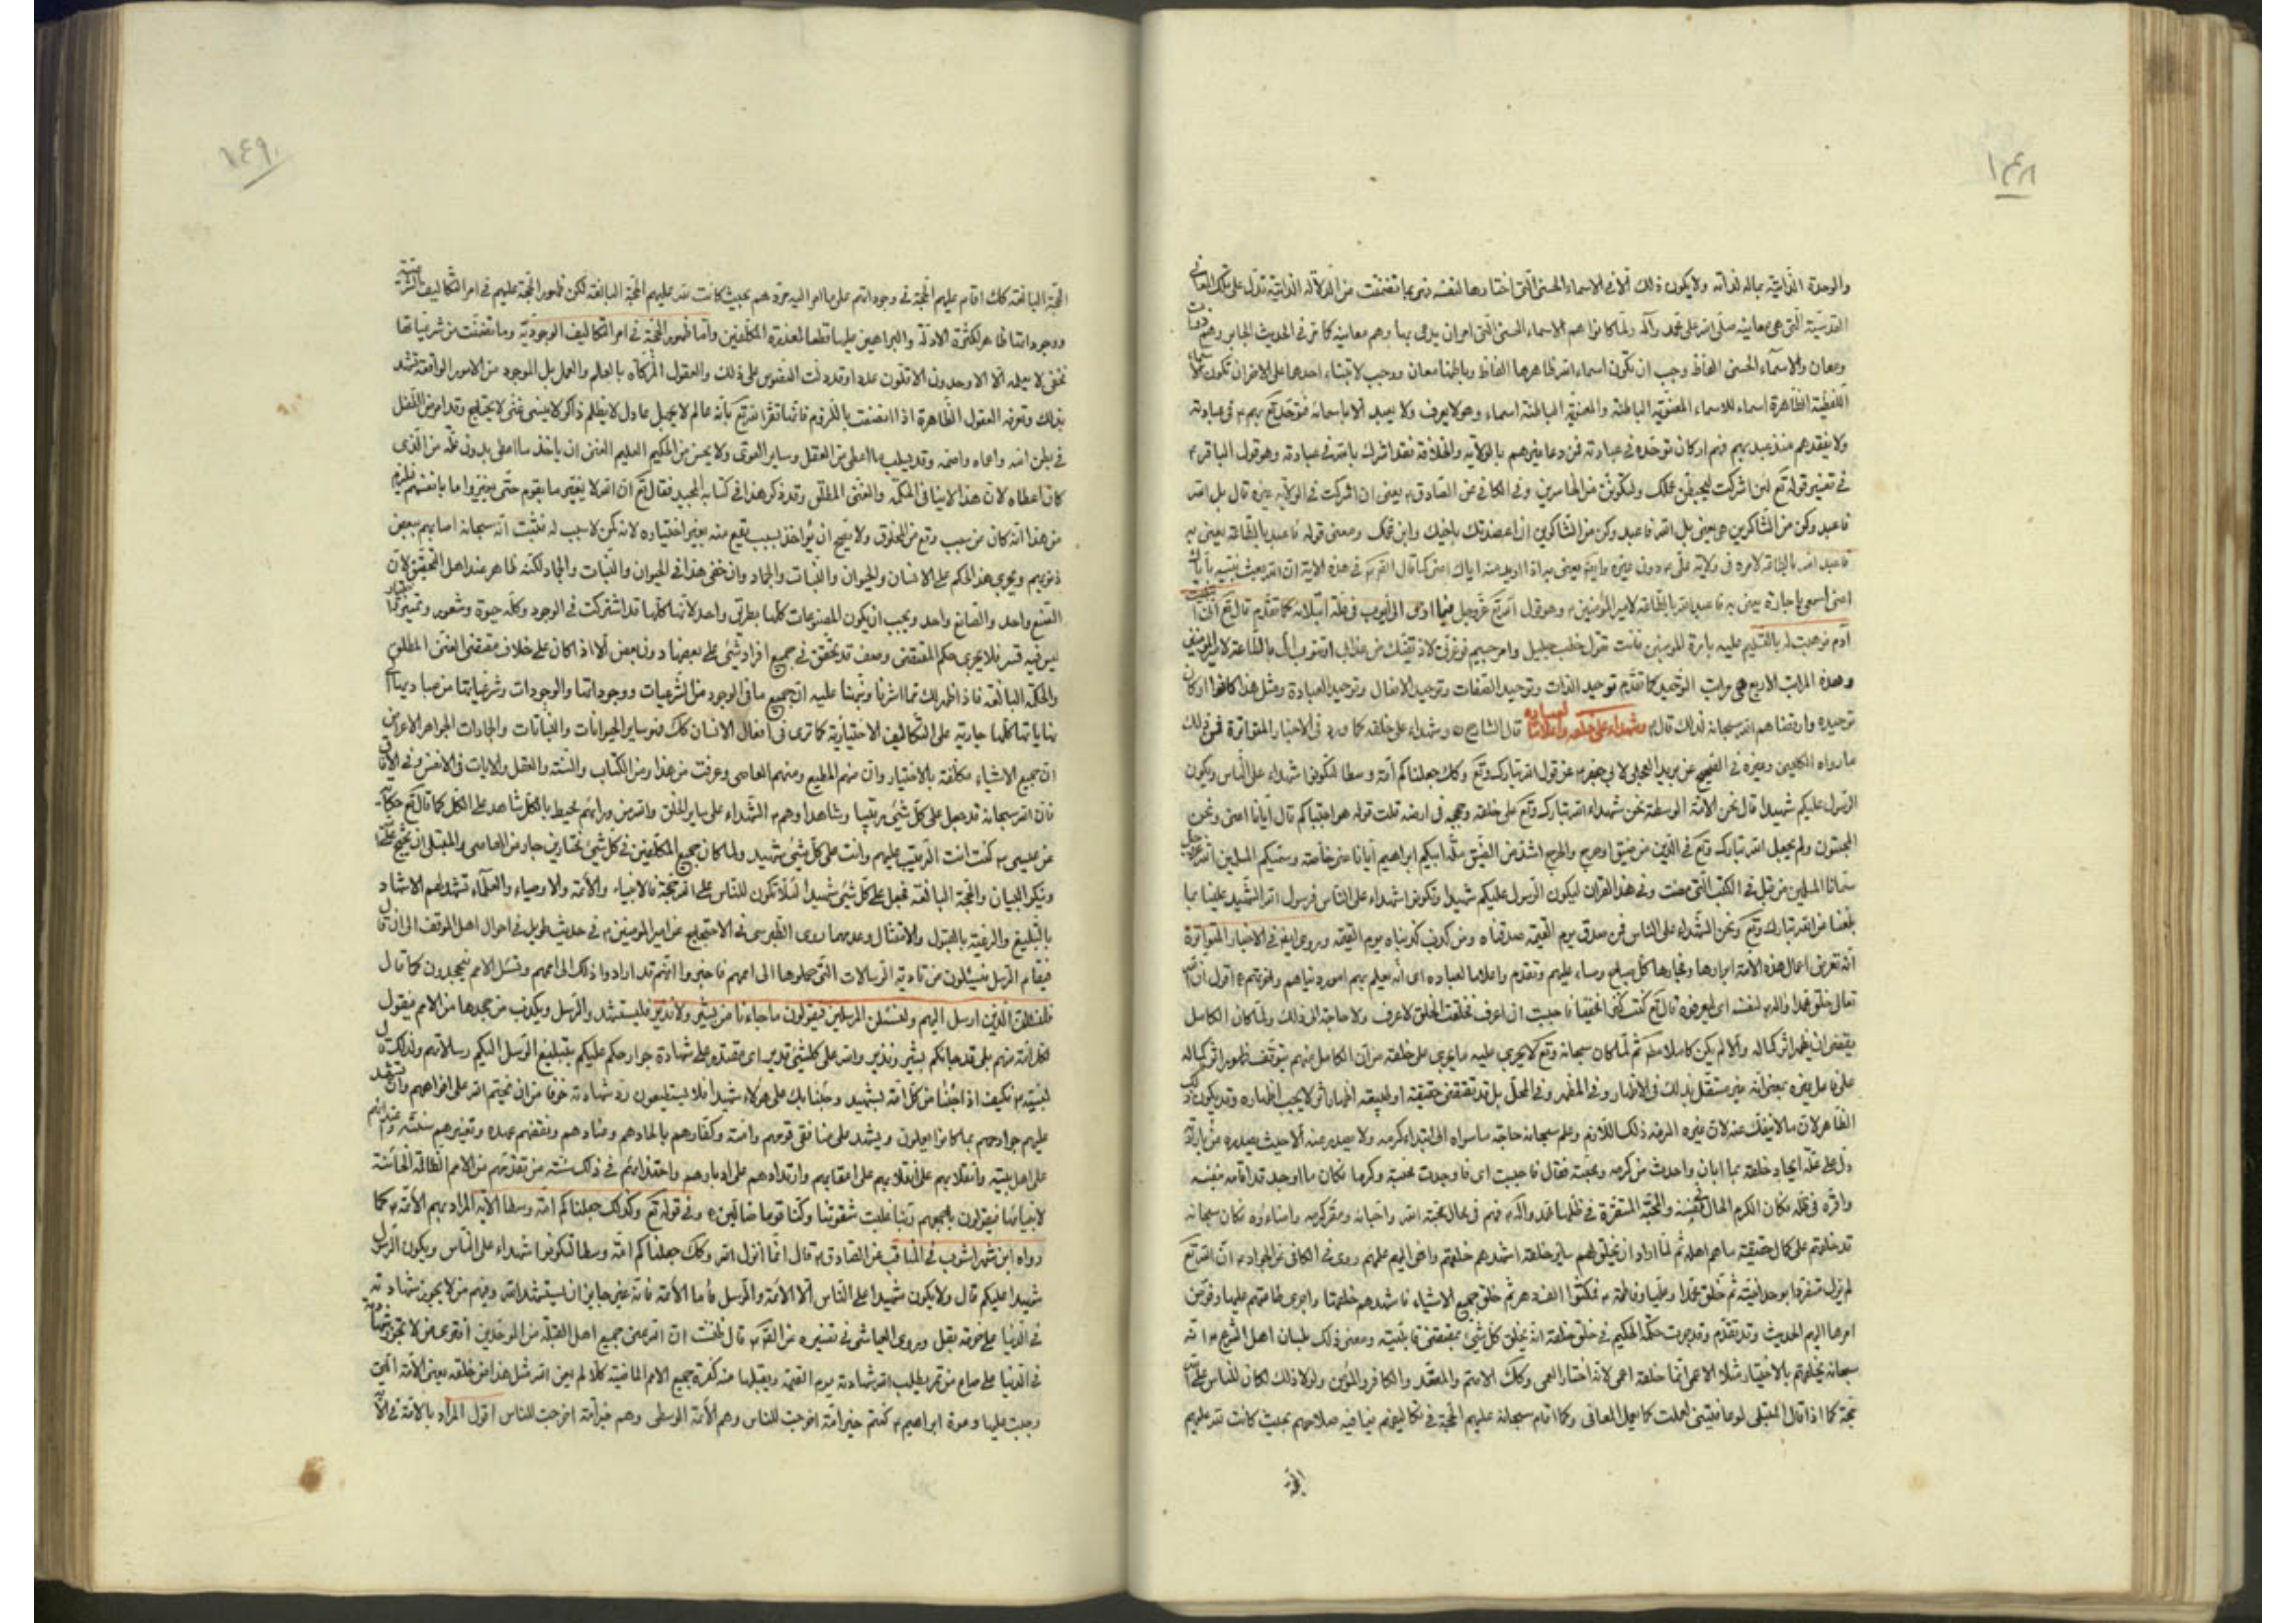 ١٤٨
والوحدة الذاتية بماله لذاته ولا يكون ذلك الا فى الاسماء الحسنى التى اختارها لنفسه فهى بما تضمنت من الدلالة الذاتية تدل على تلك المعانى
القدسية التى هى معانيه صلى الله على محمد وآله ولما كانوا هم الاسماء الحسنى التى امر ان يدعى بها وهم معانيه كما مر فى الحديث الجابر وهم
ومعان والاسماء الحسنى الفاظ وجب ان تكون اسماء الله ظاهرها الفاظ وباطنها معان ووجب احدها على الاخر ان تكون
اللفظية الظاهرة اسماء للاسماء المعنوية الباطنة والمعنوية الباطنة اسماء وهو لا يعرف ولا يعبد الا باسمائه بهم ع فى عبادته
ولا يفقدهم عند عبد بهم فهم اركان توحده فى عبادته فمن دعا غيرهم بالولاية والخلافة فقد اشرك بالله فى عبادته وهو قول الباقر ع
فى تفسير قوله تع لئن اشركت ليحبطن عملك ولتكونن من الخاسرين وفى الكافى عن الصادق ع يعنى ان اشركت فى الولاية غيره قال بل الله
فاعبد وكن من الشاكرين يعنى بل الله فاعبد وكن من الشاكرين ان اعضدتك باخيك وابن عمك ومعنى قوله فاعبد بالطاعة يعنى به
فاعبد الله بالطاعة لامره فى ولاية على ع دون غيره اياك اعنى كما قال فى هذه الاية ان الله بعث نبيه باياك
اعنى واسمعى يا جارة يعنى به فاعبد الله بالطاعة لامير المؤمنين ع وهو قول الله تع عز وجل فيما اوحى الى ايوب فى علة ابتلائه كما تقدم
آدم فوهبت له بالتسليم عليه بامرة المؤمنين فانت تقول خطب جليل وامر جسيم فوعزتى لاذيقنك من عذابى او تتوب الى بالطاعة لامير المؤمنين
وهذه المراتب الاربع هى مراتب التوحيد كما تقدم توحيد الذات وتوحيد الصفات وتوحيد الافعال وتوحيد العبادة ومثل هذا كانوا اركان
توحيده وارتضاهم الله سبحانه لذلك قال ع وشهداء على خلقه واعلاما لعباده قال الشارح ره وشهداء على خلقه كما ورد فى الاخبار المتواترة فمن ذلك
ما رواه الكلينى وغيره فى الصحيح عن بريد العجلى لابى جعفر ع عن قول الله تبارك وتع وكك جعلناكم امة وسطا لتكونوا شهداء على الناس ويكون
الرسول عليكم شهيدا قال نحن الامة الوسطة نحن شهداء الله تبارك وتع على خلقه وحججه فى ارضه قلت قوله هو اجتباكم قال ايانا اعنى ونحن
المجتبون ولم يجعل الله تبارك وتع فى الدين من ضيق او حرج والحرج اشد من الضيق ملة ابيكم ابراهيم ايانا عنى خاصة وسماكم المسلمين
سمانا المسلمين من قبل فى الكتب التى مضت وفى هذا القران ليكون الرسول عليكم شهيدا وتكونوا شهداء على الناس فرسول الله الشهيد علينا بما
بلغنا من الله تبارك وتع ونحن الشهداء على الناس فمن صدق يوم القيمة صدقناه ومن كذب كذبناه يوم القيمة وروى ايضا فى الاخبار المتواترة
انه تعرض اعمال هذه الامة ابرارها وفجارها كل صباح ومساء عليهم وتقدم واعلاما لعباده اى انه يعلم بهم امور دنياهم واخرتهم اقول ان
تعالى خلق محمدا واله ع لنفسه اى ليعرفوه قال تع كنت كنزا مخفيا فاحببت ان اعرف فخلقت الخلق لاعرف ولا حاجة الى ذلك ولما كان الكامل
يقتضى ان يظهر اثر كماله والا لم يكن كاملا مطلقا ثم لما كان سبحانه وتع لا يجرى عليه ما يجرى على خلقه من ان الكامل منهم يتوقف ظهور اثر كماله
على فاعل غيره بمعنى انه غير مستقل بذلك فى الاظهار وفى المظهر وفى المحل بل قد تقتضى حقيقته او طبيعته اظهار اثر لا يجب اظهاره وقد يكون
الظاهر لان مالا ينفك عنه لان غيره الزمه ذلك اللازم وعلم سبحانه حاجة ما سواه الى ابتداء كرمه ولا يصدر عنه الا حيث يصدره
دل على علة ايجاد خلقه بما ابان واحدث من كرمه ومحبته فقال فاحببت اى فاوجدت محبة وكرما فكان ما اوجد قد اقامه بنفسه
واقره فى ظله فكان الكرم الحال بنفسه والمحبة المستقرة فى ظلها محمد وآله ع فهم فى محال محبة الله واحبائه ومقر كرمه وامناؤه فكان سبحانه
قد خلقهم على كمال حقيقة ما هم اهله ثم لما اراد ان يخلق لهم ساير خلقه اشهدهم خلقهم وانهى اليهم علمهم روى فى الكافى عن الجواد ع ان الله تع
لم يزل متفردا بوحدانيته ثم خلق محمدا وعليا وفاطمة ع فمكثوا الف دهر ثم خلق جميع الاشياء فاشهدهم خلقها واجرى طاعتهم عليها وفوض
امرها اليهم الحديث وقد تقدم وقد جرت حكمة الحكيم فى خلق خلقه انه يخلق كل شئ بمقتضى قابليته ومعنى ذلك بلسان اهل الشرع ع انه
سبحانه يخلقهم بالاختيار مثلا الاعمى انما خلقه اعمى لانه اختار العمى وكك الاصم والمقعد والكافر والمؤمن ولولا ذلك لكان للناس على
حجة كما اذا قال المبتلى لو عافيتنى لعملت كما يعمل المعافى وكما اقام سبحانه عليهم الحجة فى تكاليفهم فيما فيه صلاحهم بحيث كانت لله عليهم
الحجة
١٤٩
الحجة البالغة كك اقام عليهم الحجة فى وجوداتهم على ما امر اليه مردهم بحيث كانت لله عليهم الحجة البالغة لكن ظهور الحجة عليهم فى امر التكاليف الشرعية
ووجوداتها ظاهر لكثرة الادلة والبراهين عليها قطعا لمعذرة المكلفين واما ظهور الحجة فى امر التكاليف الوجودية وما تضمنت من شرعياتها
فخفى لا يعلمه الا الاوحدون الاقلون عددا وقد دلت النصوص على ذلك والعقول المزكاة بالعلم والعمل بل الموجود من الامور الواقعة تشهد
بذلك وتعرفه العقول الظاهرة اذا انصفت باللزوم فانها تقر لله تع بانه عالم لا يجهل عادل لا يظلم ذاكر لا ينسى غنى لا يحتاج وقد امرض الطفل
فى بطن امه واعماه واصمه وقد يسلب ما اعطى من العقل وساير القوى ولا يحسن من الحكيم العليم الغنى ان ياخذ ما اعطى بدون علة من الذى
كان اعطاه لان هذا لا ينافى الحكمة والغنى المطلق وقد ذكر هذا فى كتابه المجيد فقال تع ان الله لا يغير ما بقوم حتى يغيروا ما بانفسهم فيلزم
من هذا انه كان من سبب وقع من المخلوق ولا يصح ان يؤاخذ بسبب يقع منه بغير اختياره لانه كمن لا سبب له فثبت انه سبحانه اصابهم ببعض
ذنوبهم ويجرى هذا الحكم على الانسان والحيوان والنبات والجماد وان خفى هذا فى الحيوان والنبات والجماد لكنه ظاهر عند اهل التحقيق لان
الصنع واحد والصانع واحد ويجب ان يكون المصنوعات كلها بطريق واحد لانها كلها قد اشتركت فى الوجود وكله حيوة وشعور وتمييز
ليس فيه قسر فلا يجرى حكم المقتضى وصف قد تحقق فى جميع افراد شئ على بعضها دون بعض الا اذا كان على خلاف مقتضى الغنى المطلق
والحكمة البالغة فاذا ظهر لك مما اشرنا ونبهنا عليه ان جميع ما فى الوجود من الشرعيات ووجوداتها والوجودات وشرعياتها من مباديها الى
نهاياتها كلها جارية على التكاليف الاختيارية كما ترى فى افعال الانسان كك فى ساير الحيوانات والنباتات والجمادات الجواهر والاعراض
ان جميع الاشياء مكلفة بالاختيار وان منهم المطيع ومنهم العاصى وعرفت من هذا ومن الكتاب والسنة والعقل والايات فى الانفس وفى الافاق
فان الله سبحانه قد جعل على كل شئ رقيبا وشاهدا وهم ع الشهداء على ساير الخلق والله من ورائهم محيط بالكل شاهد على الكل كما قال تع حكاية
عن عيسى ع كنت انت الرقيب عليهم وانت على كل شئ شهيد ولما كان جميع المكلفين فى كل شئ مختارين جاز من العاصى والمبتلى ان يحتج
وينكر البيان والحجة البالغة فجعل على كل شئ شهيدا لئلا تكون للناس على الله حجة فالانبياء والائمة والاوصياء والعلماء تشهد لهم الاشهاد
بالتبليغ والرعية بالقبول والامتثال وعدمهما روى الطبرسى فى الاحتجاج عن امير المؤمنين ع فى حديث طويل فى احوال اهل الموقف الى ان قال
فيقام الرسل فيسئلون عن تادية الرسالات التى حملوها الى اممهم فاخبروا انهم قد ادوا ذلك الى اممهم وتسئل الامم فيجحدون كما قال
فلنسئلن الذين ارسل اليهم ولنسئلن المرسلين فيقولون ما جاءنا من بشير ولا نذير فليستشهد والرسل ويكذب من جحدها من الامم فيقول
لكل امة منهم بلى قد جائكم بشير ونذير والله على كلشئ قدير اى مقتدر على شهادة جوارحكم عليكم بتبليغ الرسل اليكم رسالاتهم ولذلك قال
لنبيه ع فكيف اذا جئنا من كل امة بشهيد وجئنا بك على هؤلاء شهيدا فلا يستطيعون رد شهادته خوفا من ان يختم الله على افواههم وان تشهد
عليهم جوارحهم بما كانوا يعملون ويشهد على منافقى قومهم وامته وكفارهم بالحادهم وعنادهم ونقضهم عهده وتغييرهم سنته
على اهل بيته وانقلابهم على اعقابهم وارتدادهم على ادبارهم واحتذائهم فى ذلك سنة من تقدمهم من الامم الظالمة الخائنة
لانبيائها فيقولون باجمعهم ربنا غلبت شقوتنا وكنا قوما ضالين وفى قوله تع وكذلك جعلناكم امة وسطا الاية المراد بهم الائمة ع كما
رواه ابن شهراشوب فى المناقب عن الصادق ع قال انما انزل الله وكك جعلناكم امة وسطا لتكونوا شهداء على الناس ويكون الرسول
شهيدا عليكم قال ولا يكون شهيدا على الناس الا الائمة والرسل فاما الامة فانه غير جايز ان يستشهد الله وفيهم من لا يجوز شهادته
فى الدنيا على حزمة بقل وروى العياشى فى تفسيره قال ظننت ان الله عنى جميع اهل القبلة من الموحدين افترى من لا تجوز شهادته
فى الدنيا على صاع من تمر يطلب الله شهادته يوم القيمة ويقبلها منه بحضرة جميع الامم الماضية كلا لم يعن الله مثل هذا من خلقه يعنى الامة التى
وجبت عليها دعوة ابراهيم ع كنتم خير امة اخرجت للناس وهم الامة الوسطى وهم خير امة اخرجت للناس اقول المراد بالامة